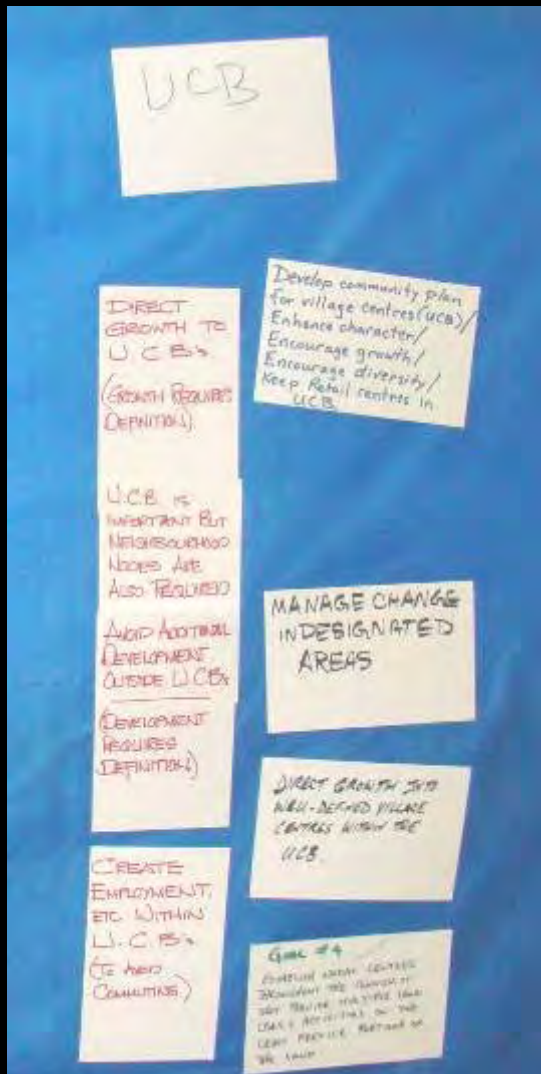 UCB
DIRECT
GROWTH TO
U C B's
(GROWTH REQUIRES
DEFINITION)
U.C.B. IS
IMPORTANT BUT
NEIGHBOURHOOD
NODES ARE
ALSO REQUIRED
AVOID ADDITIONAL
DEVELOPMENT
OUTSIDE U.CBs
(DEVELOPMENT
REQUIRES
DEFINITION)
CREATE
EMPLOYMENT,
ETC. WITHIN
U.C.B's
(TO AVOID
COMMUTING)
Develop community plan
for village centres (UCB)/
Enhance character/
Encourage growth/
Encourage diversity/
Keep Retail centres in
UCB
MANAGE CHANGE
IN DESIGNATED
AREAS
DIRECT GROWTH INTO
WELL-DEFINED VILLAGE
CENTRES WITHIN THE
UCB
GOAL #4
CENTRES
THROUGHOUT THE
PROVIDE MULTIPLE LAND
ACTIVITIES ON THE
LEAST PORTIONS OF
THE LAND